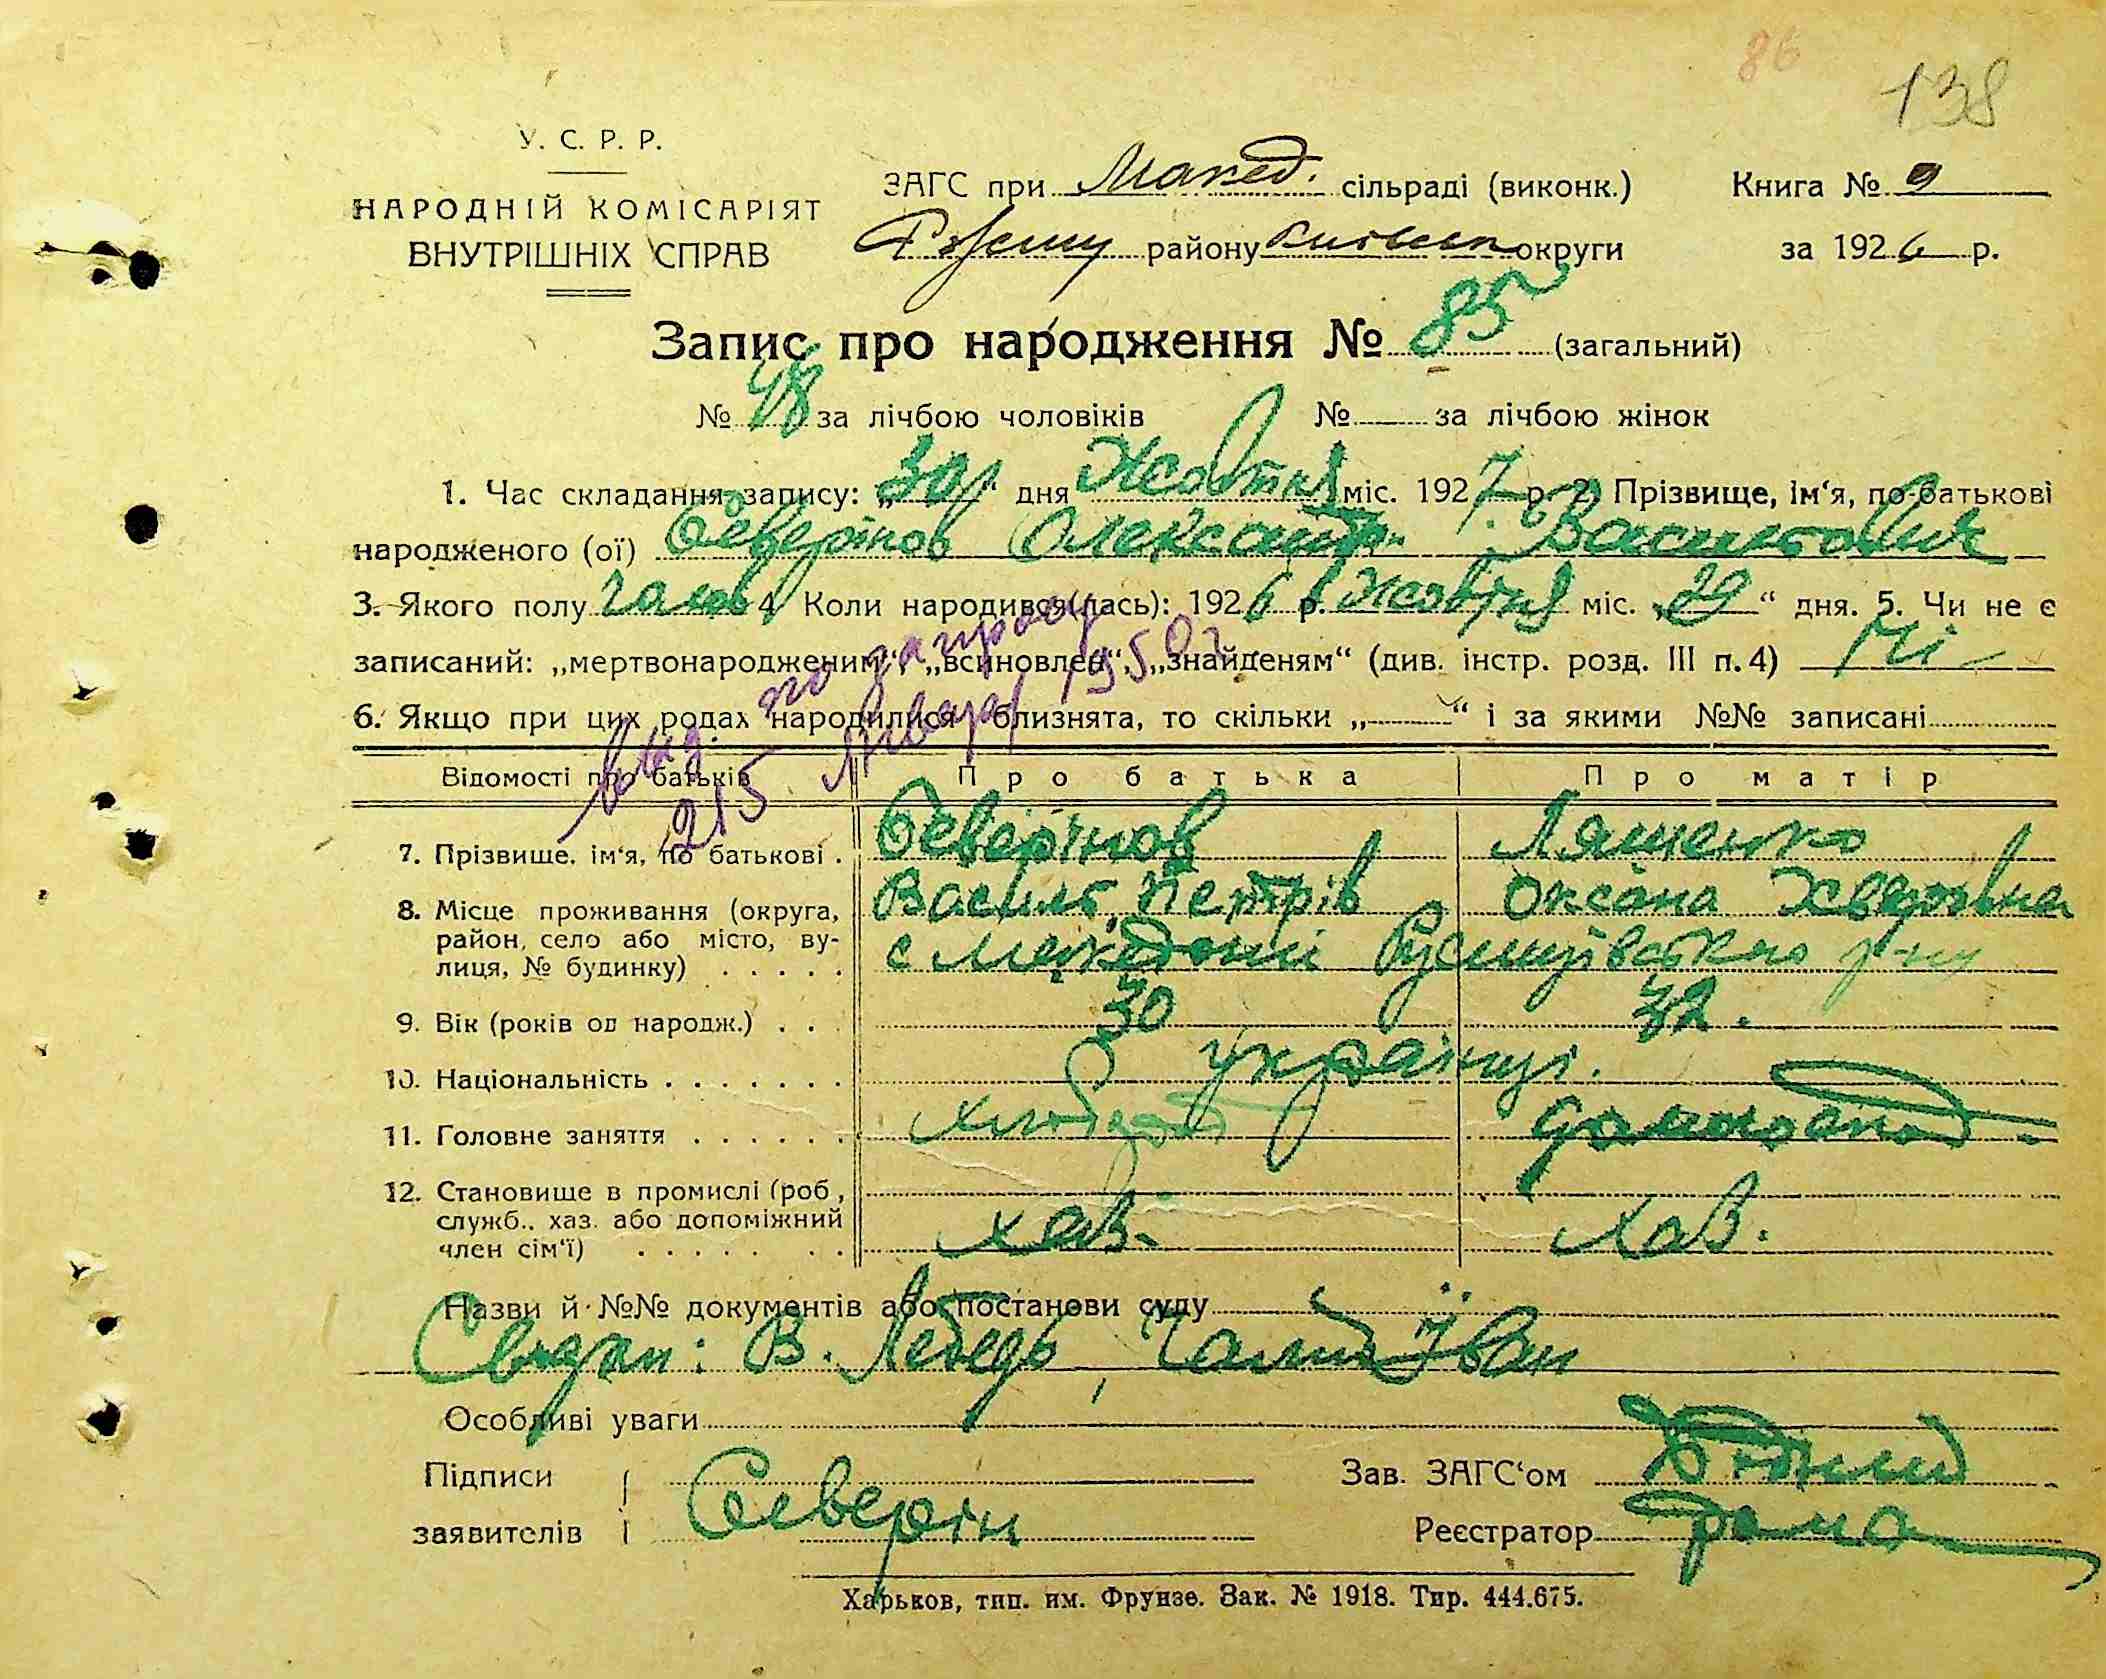 86
138
У. С. Р. Р.
НАРОДНІЙ КОМІСАРІЯТ
ВНУТРІШНІХ СПРАВ
ЗАГС при Макед. сільраді (виконк.)
району округи
Книга № 9
за 1926 р.
Запис про народження № 85 (загальний)
№ 48 за лічбою чоловіків № за лічбою жінок
1. Час складання запису: „30" дня Жовтня міс. 1927 р. 2) Прізвище, ім'я, по-батькові
народженого (ої) Северінов Олександр Васильович
3. Якого полу 4. Коли народився(лась): 1926 р. Жовтня міс. „29" дня. 5. Чи не є
записаний: „мертвонародженим", „всиновлен", „знайденям" (див. інстр. розд. III п. 4) Ні
6. Якщо при цих родах народилися близнята, то скільки „ " і за якими №№ записані
выд. по запросу
215 Января 1950 г.
Відомості про батьків Про батька Про матір
7. Прізвище, ім'я, по батькові . Северінов Лященко
Василь Петрів Оксана
8. Місце проживання (округа,
район, село або місто, ву-
лиця, № будинку) . . . . . с Македони р-ну
9. Вік (років од народж.) . . . 30 32.
10. Національність . . . . . . . українці.
11. Головне заняття . . . . . . хлібороб
12. Становище в промислі (роб,
служб., хаз. або допоміжний
член сім'ї) . . . . . . . хаз. хаз.
Назви й №№ документів або постанови суду
Свидки: В. Лебедь, Іван
Особливі уваги
Підписи
заявителів Северін
Зав. ЗАГС'ом
Реєстратор
Харьков, тип. им. Фрунзе. Зак. № 1918. Тир. 444.675.